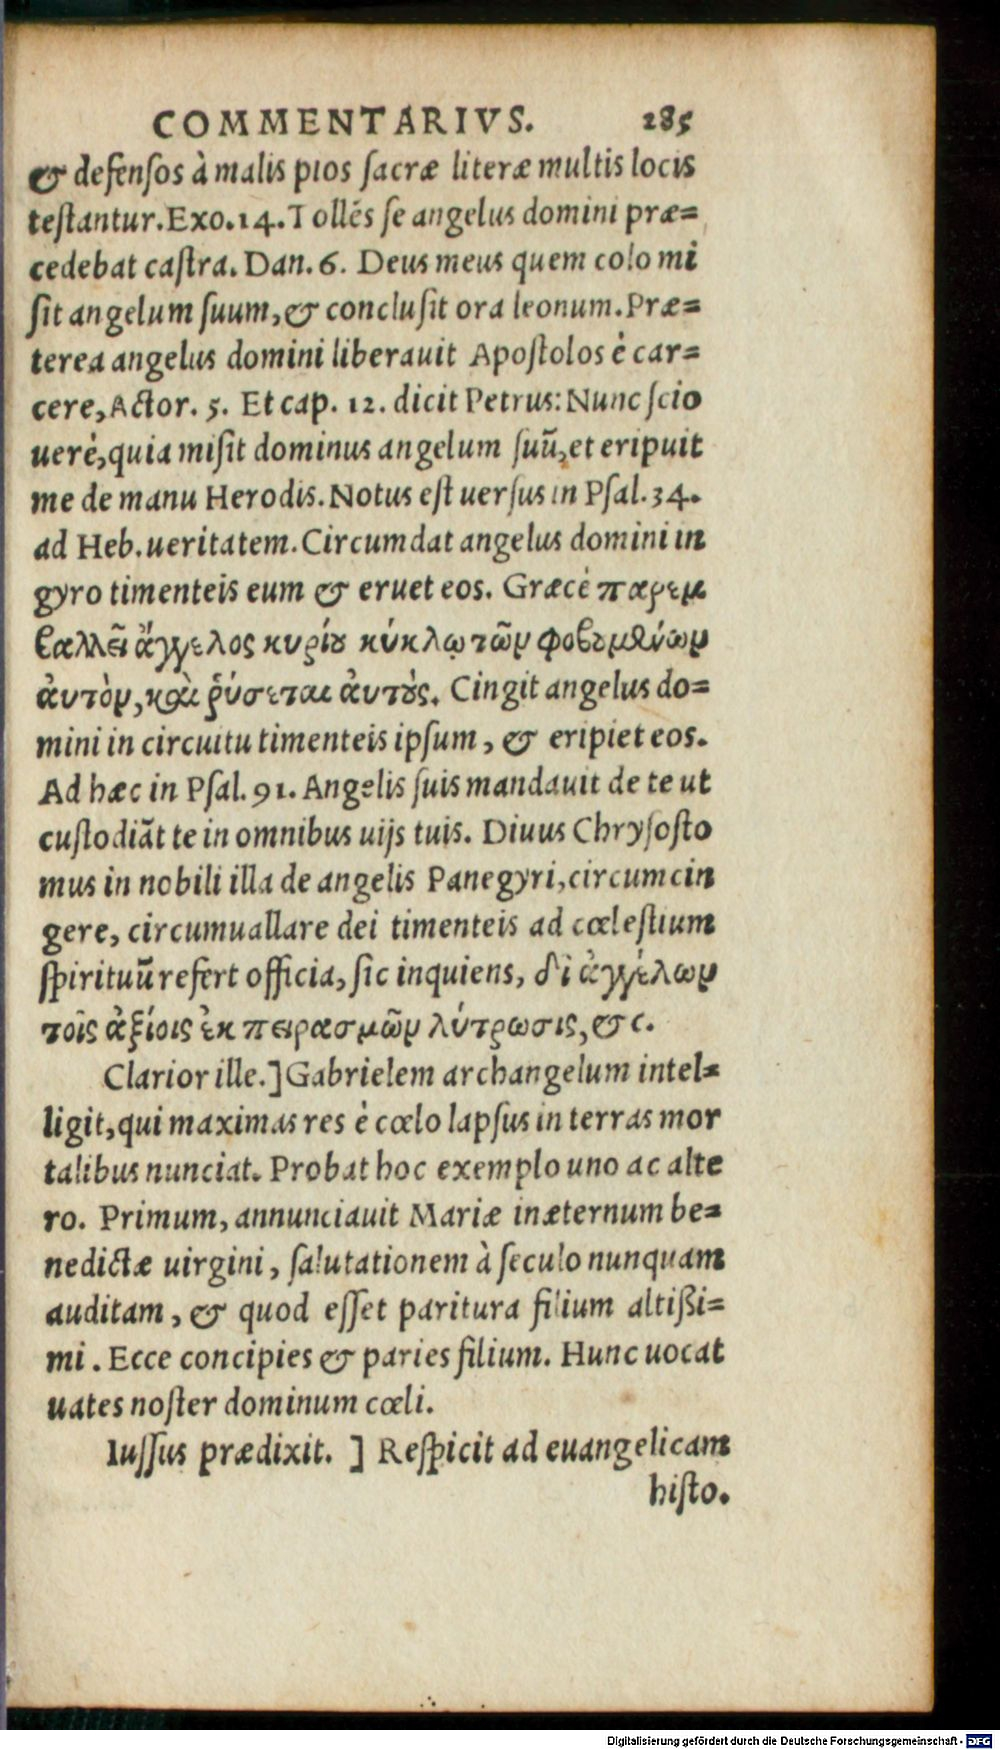 COMMENTARIVS. 285
& defensos à malis pios sacræ literæ multis locis
testantur. Exo. 14. Tollẽs se angelus domini præ=
cedebat castra. Dan. 6. Deus meus quem colo mi
sit angelum suum, & conclusit ora leonum. Præ=
terea angelus domini liberauit Apostolos è car=
cere, Actor. 5. Et cap. 12. dicit Petrus: Nunc scio
uerè, quia misit dominus angelum suũ, et eripuit
me de manu Herodis. Notus est uersus in Psal. 34.
ad Heb. ueritatem. Circumdat angelus domini in
gyro timenteis eum & eruet eos. Græcè παρεμ
βαλλεῖ ἄγγελος κυρίου κύκλῳ τῶν φοβουμένων
ἀυτὸν, καὶ ῥύσεται ἀυτοὺς. Cingit angelus do=
mini in circuitu timenteis ipsum, & eripiet eos.
Ad hæc in Psal. 91. Angelis suis mandauit de te ut
custodiãt te in omnibus uijs tuis. Diuus Chrysosto
mus in nobili illa de angelis Panegyri, circumcin
gere, circumuallare dei timenteis ad cœlestium
spirituũ refert officia, sic inquiens, δἰ ἀγγέλων
τοῖς ἀξίοις ἐκ πειρασμῶν λύτρωσις, &c.
Clarior ille.] Gabrielem archangelum intel=
ligit, qui maximas res è cœlo lapsus in terras mor
talibus nunciat. Probat hoc exemplo uno ac alte
ro. Primum, annunciauit Mariæ inæternum be=
nedictæ uirgini, salutationem à seculo nunquam
auditam, & quod esset paritura filium altißi=
mi. Ecce concipies & paries filium. Hunc uocat
uates noster dominum cœli.
Iussus prædixit. ] Respicit ad euangelicam
histo.
Digitalisierung gefördert durch die Deutsche Forschungsgemeinschaft - DFG